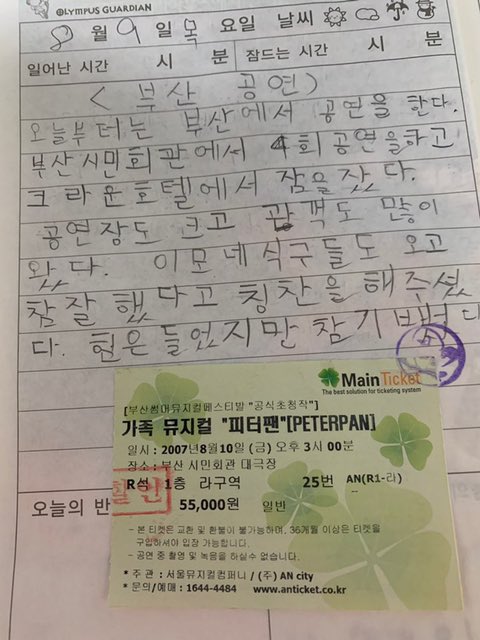 OLYMPUS GUARDIAN
8월 9일 목요일 날씨
일어난 시간 시 분 잠드는 시간 시 분
< 부산 공연 >
오늘부터는 부산에서 공연을 한다.
부산시민회관에서 4회공연을하고
크라운호텔에서 잠을 잤다.
공연장도 크고 관객도 많이
왔다. 이모네식구들도 오고
참잘 했다고 칭찬을 해주셨
다. 힘은 들었지만 참 기뻤다
MainTicket
The best solution for ticketing system
[부산썸머뮤지컬페스티발 "공식초청작"]
가족 뮤지컬 "피터팬"[PETERPAN]
일시 : 2007년8월10일 (금) 오후 3시 00분
장소 : 부산 시민회관 대극장
R석 1층 라구역 25번 AN(R1-라)
할인
55,000원 일반
오늘의 반
- 본 티켓은 교환 및 환불이 불가능하며, 36개월 이상은 티켓을
구입하셔야 입장 가능합니다.
- 공연 중 촬영 및 녹음을 하실수 없습니다.
* 주 관 : 서울뮤지컬컴퍼니 / (주) AN city
* 문의/예매 : 1644-4484 www.anticket.co.kr